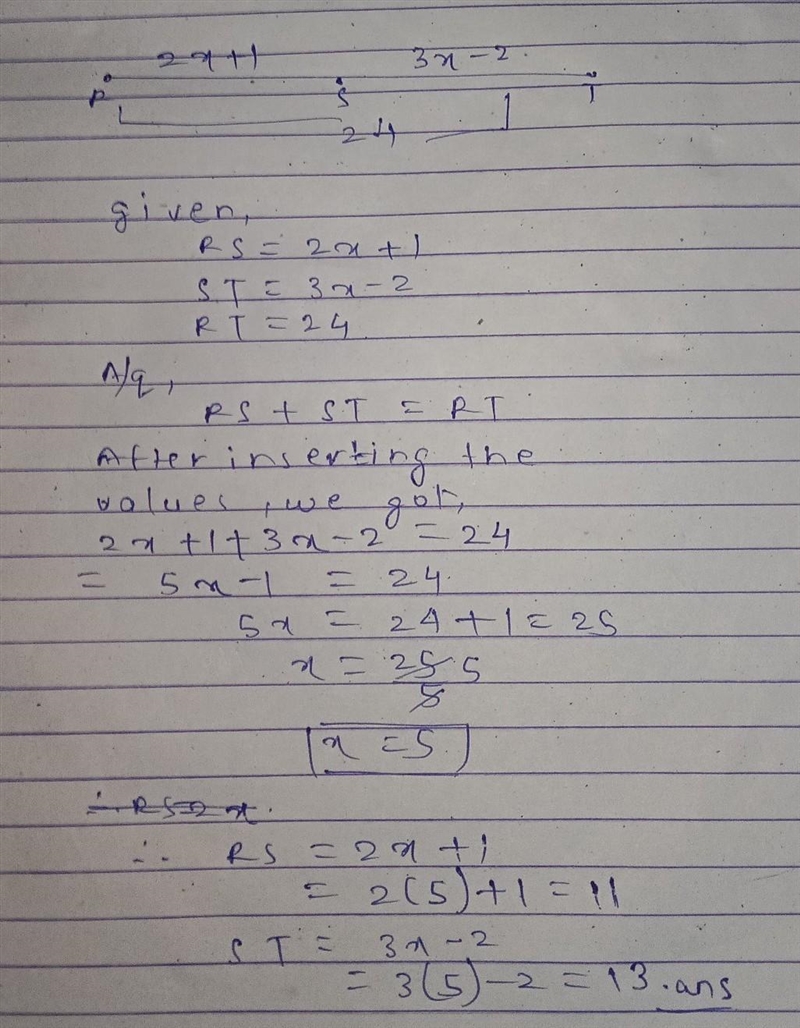 2x+1 3x-2
R S T
24
given,
RS = 2x+1
ST = 3x-2
RT = 24
A/q,
RS + ST = RT
After inserting the
values, we got,
2x+1+3x-2 = 24
= 5x-1 = 24.
5x = 24+1 = 25
x = 25 5
5
x = 5
∴ RS=2x.
∴ RS = 2x+1
= 2(5)+1 = 11
ST = 3x-2
= 3(5)-2 = 13. ans